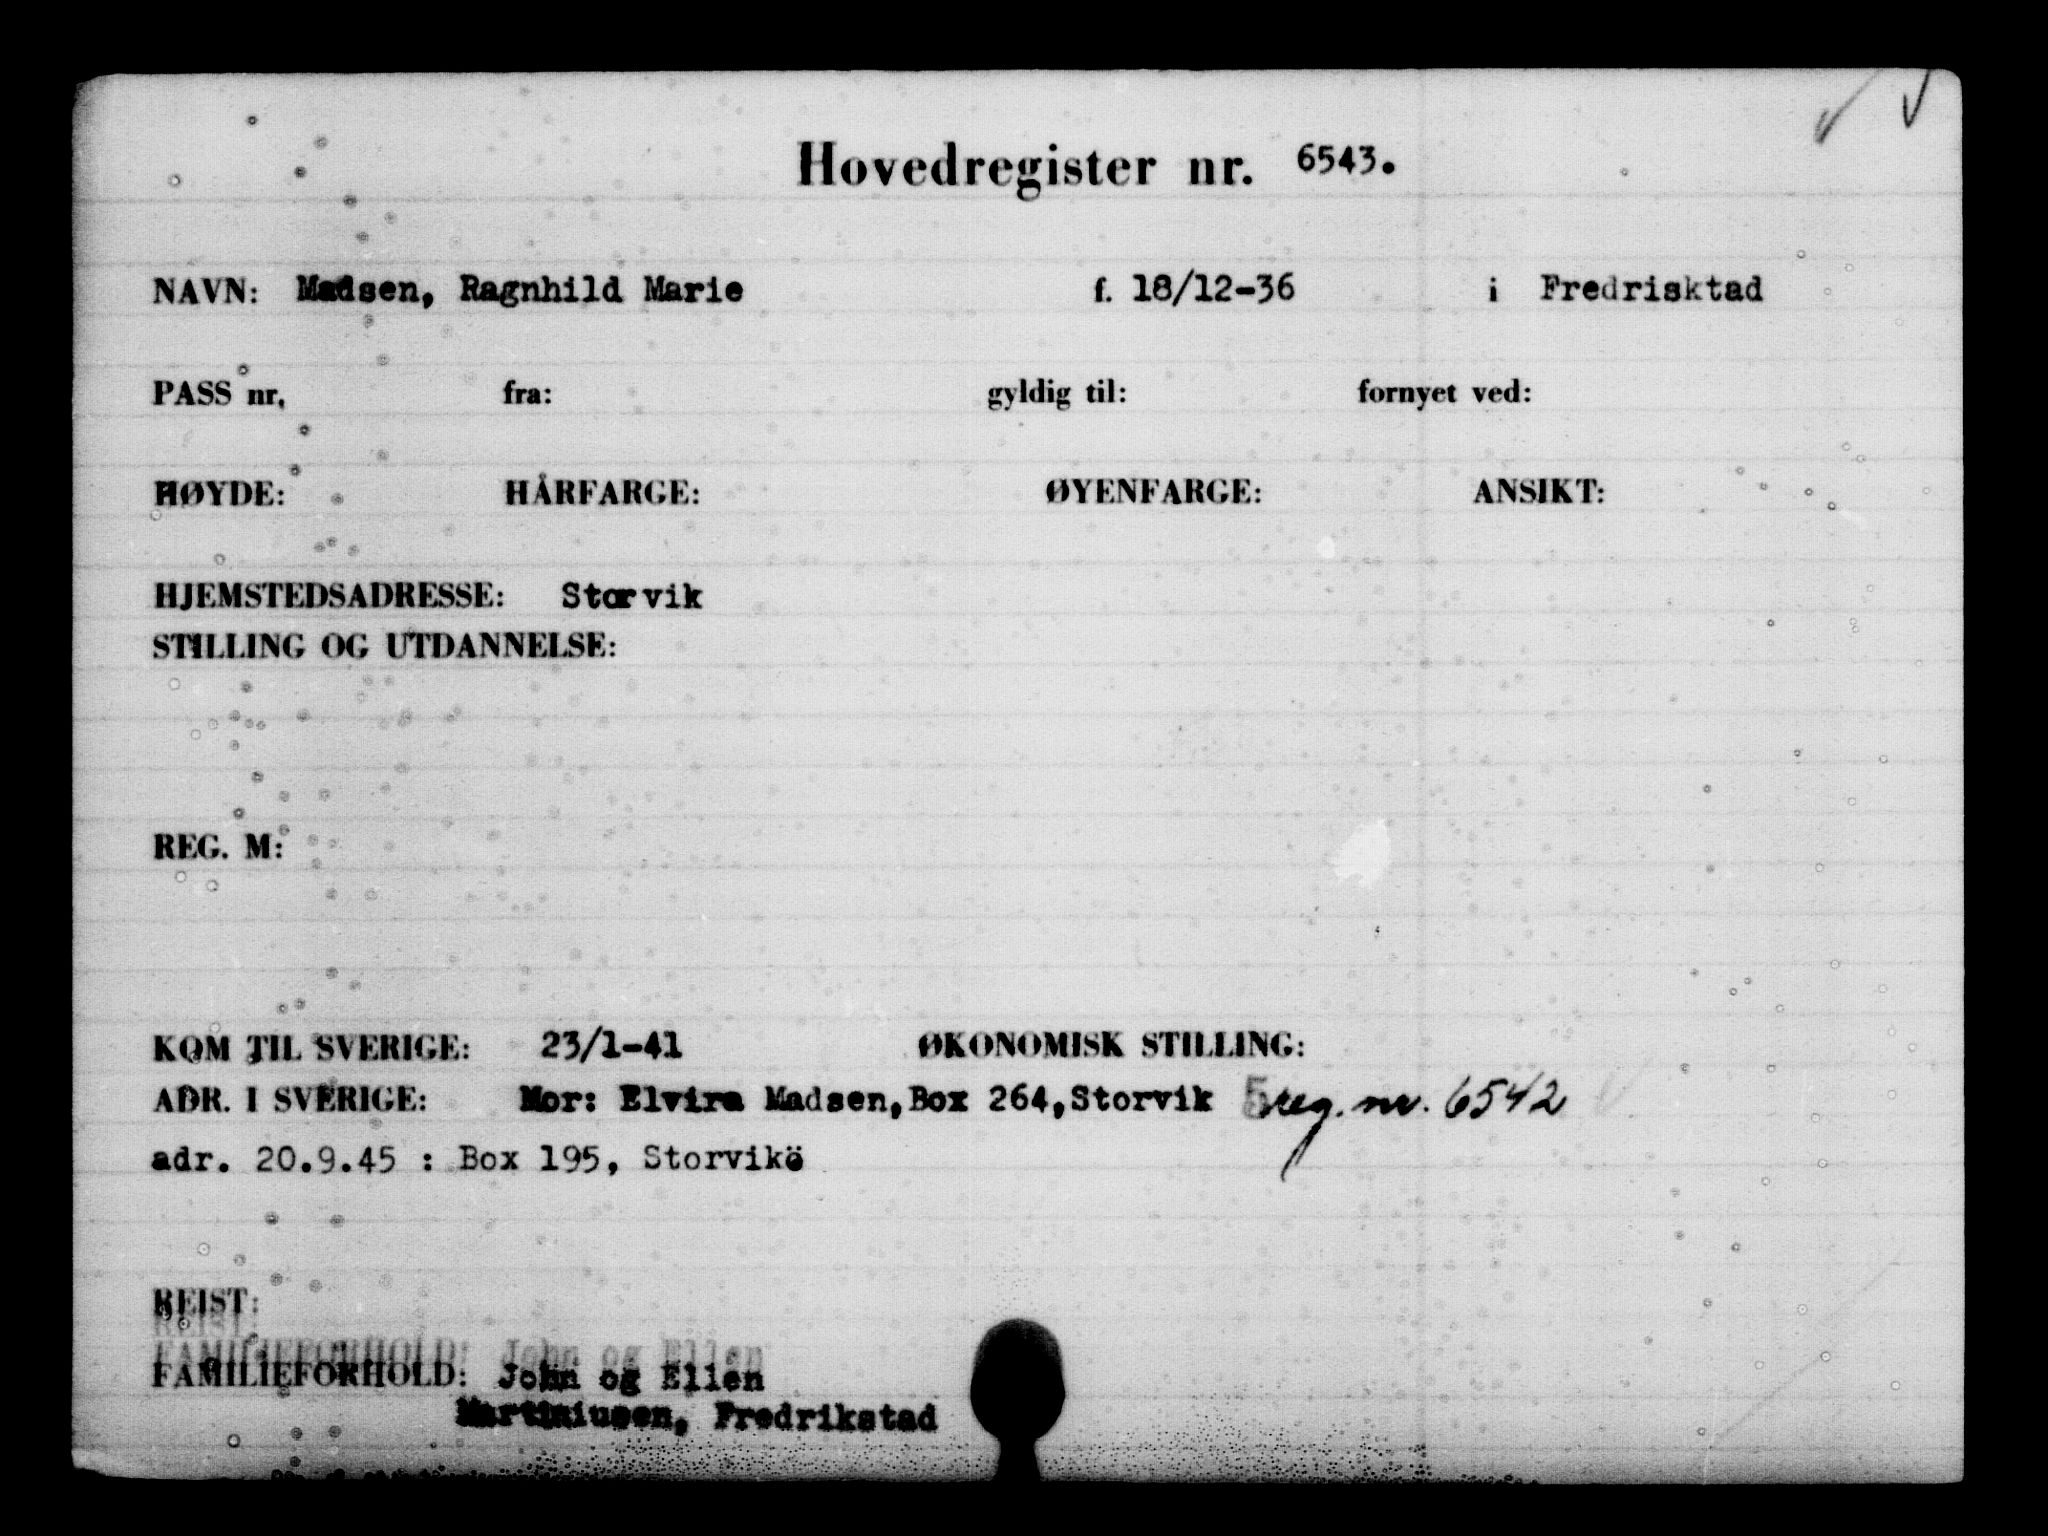 Hovedregister nr. 6543.
NAVN: Madsen, Ragnhild Marie f. 18/12-36 i Fredrisktad
PASS nr. fra: gyldig til: fornyet ved:
HØYDE: HÅRFARGE: ØYENFARGE: ANSIKT:
HJEMSTEDSADRESSE: Storvik
STILLING OG UTDANNELSE:
REG. M:
KOM TIL SVERIGE: 23/1-41 ØKONOMISK STILLING:
ADR. I SVERIGE: Mor: Elvira Madsen, Box 264, Storvik reg. nr. 6542
adr. 20.9.45 : Box 195, Storvikö
REIST:
FAMILIEFORHOLD: John og Ellen
Martiniusen, Fredrikstad